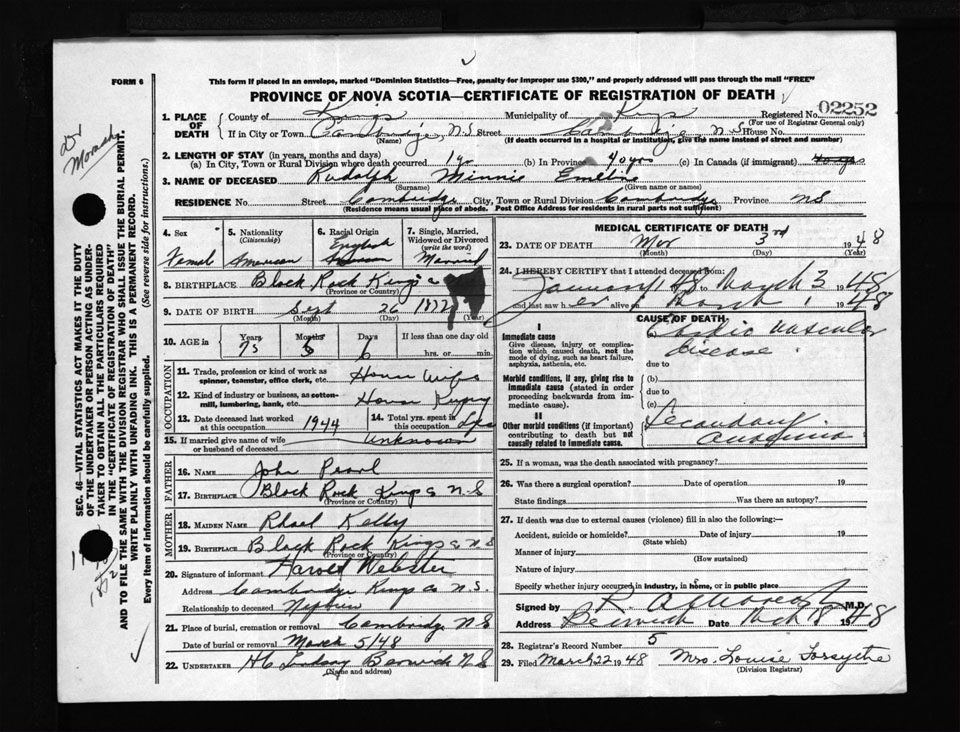 FORM 6
This form if placed in an envelope, marked "Dominion Statistics—Free, penalty for improper use $300," and properly addressed will pass through the mail "FREE"
PROVINCE OF NOVA SCOTIA—CERTIFICATE OF REGISTRATION OF DEATH
Registered No. 02252
(For use of Registrar General only)
1. PLACE OF DEATH County of Kings Municipality of Kings
If in City or Town Cambridge, N.S Street Cambridge, N S House No.
(Name) (If death occurred in a hospital or institution, give the name instead of street and number)
2. LENGTH OF STAY (in years, months and days)
(a) In City, Town or Rural Division where death occurred 1 yr (b) In Province 40 yrs (c) In Canada (if immigrant)
3. NAME OF DECEASED Rudolph Minnie Emeline
(Surname) (Given name or names)
RESIDENCE No Street Cambridge City, Town or Rural Division Cambridge Province NS
(Residence means usual place of abode. Post Office Address for residents in rural parts not sufficient)
4. Sex 5. Nationality (Citizenship) 6. Racial Origin 7. Single, Married, Widowed or Divorced (write the word)
Female American English Married
8. BIRTHPLACE Black Rock Kings
(Province or Country)
9. DATE OF BIRTH Sept 26 1872
(Month) (Day) (Year)
10. AGE in Years Months Days If less than one day old
75 5 6 hrs. or min.
OCCUPATION
11. Trade, profession or kind of work as spinner, teamster, office clerk, etc. House Wife
12. Kind of industry or business, as cotton-mill, lumbering, bank, etc. House Keeping
13. Date deceased last worked at this occupation 1944 14. Total yrs. spent in this occupation Life
15. If married give name of wife or husband of deceased Unknown
FATHER
16. NAME John Pearl
17. BIRTHPLACE Black Rock Kings Co N S
(Province or Country)
MOTHER
18. MAIDEN NAME Rhael Kelly
19. BIRTHPLACE Black Rock Kings Co N S
(Province or Country)
20. Signature of informant Harold Webster
Address Cambridge Kings Co N.S.
Relationship to deceased Nephew
21. Place of burial, cremation or removal Cambridge N S
Date of burial or removal March 5/48
22. UNDERTAKER H C Lindsay Berwick N S
(Name and address)
MEDICAL CERTIFICATE OF DEATH
23. DATE OF DEATH Mar 3rd 1948
(Month) (Day) (Year)
24. I HEREBY CERTIFY that I attended deceased from:
January 1 48 to March 3 1948
and last saw her alive on March 1 1948
CAUSE OF DEATH
I
Immediate cause
Give disease, injury or complication which caused death, not the mode of dying, such as heart failure, asphyxia, asthenia, etc.
(a) Cardio Vascular disease
due to
Morbid conditions, if any, giving rise to immediate cause (stated in order proceeding backwards from immediate cause).
(b)
due to
(c)
II
Other morbid conditions (if important) contributing to death but not causally related to immediate cause.
Secondary anaemia
25. If a woman, was the death associated with pregnancy?
26. Was there a surgical operation? Date of operation 19
State findings Was there an autopsy?
27. If death was due to external causes (violence) fill in also the following:—
Accident, suicide or homicide? Date of injury 19
(State which)
Manner of injury
(How sustained)
Nature of injury
Specify whether injury occurred in industry, in home, or in public place
Signed by R. A. M.D.
Address Berwick Date March 1948
28. Registrar's Record Number 5
29. Filed March 22 1948 Mrs. Louise Forsythe
(Division Registrar)
SEC. 46—VITAL STATISTICS ACT MAKES IT THE DUTY
OF THE UNDERTAKER OR PERSON ACTING AS UNDER-
TAKER TO OBTAIN ALL THE PARTICULARS REQUIRED
IN THE "CERTIFICATE OF REGISTRATION OF DEATH"
AND TO FILE THE SAME WITH THE DIVISION REGISTRAR WHO SHALL ISSUE THE BURIAL PERMIT.
WRITE PLAINLY WITH UNFADING INK. THIS IS A PERMANENT RECORD.
Every item of information should be carefully supplied. (See reverse side for instructions.)